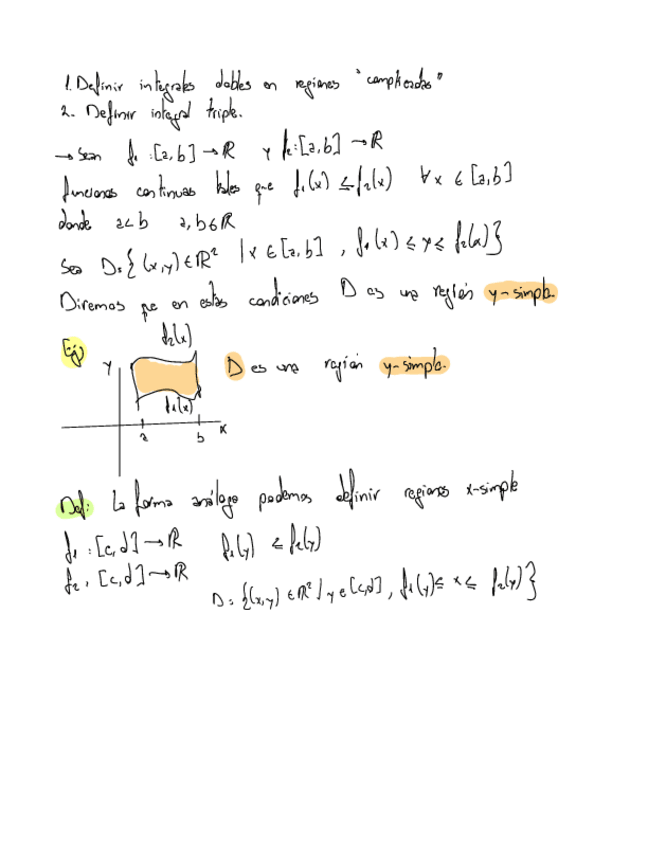 1. Definir integrales dobles en regiones "complicadas"
2. Definir integral triple.
→ Sean f₁ : [a,b] → ℝ y f₂ : [a,b] → ℝ
funciones continuas tales que f₁(x) ≤ f₂(x) ∀x ∈ [a,b]
donde a<b a,b∈ℝ
Sea D = {(x,y) ∈ ℝ² | x ∈ [a,b] , f₁(x) ≤ y ≤ f₂(x)}
Diremos que en estas condiciones D es una región y-simple.
Ej)
f₂(x)
y
D es una región y-simple.
f₁(x)
a b x
Def: La forma análoga podemos definir regiones x-simple
f₁ : [c,d] → ℝ f₁(y) ≤ f₂(y)
f₂ : [c,d] → ℝ
D = {(x,y) ∈ ℝ² / y ∈ [c,d] , f₁(y) ≤ x ≤ f₂(y)}